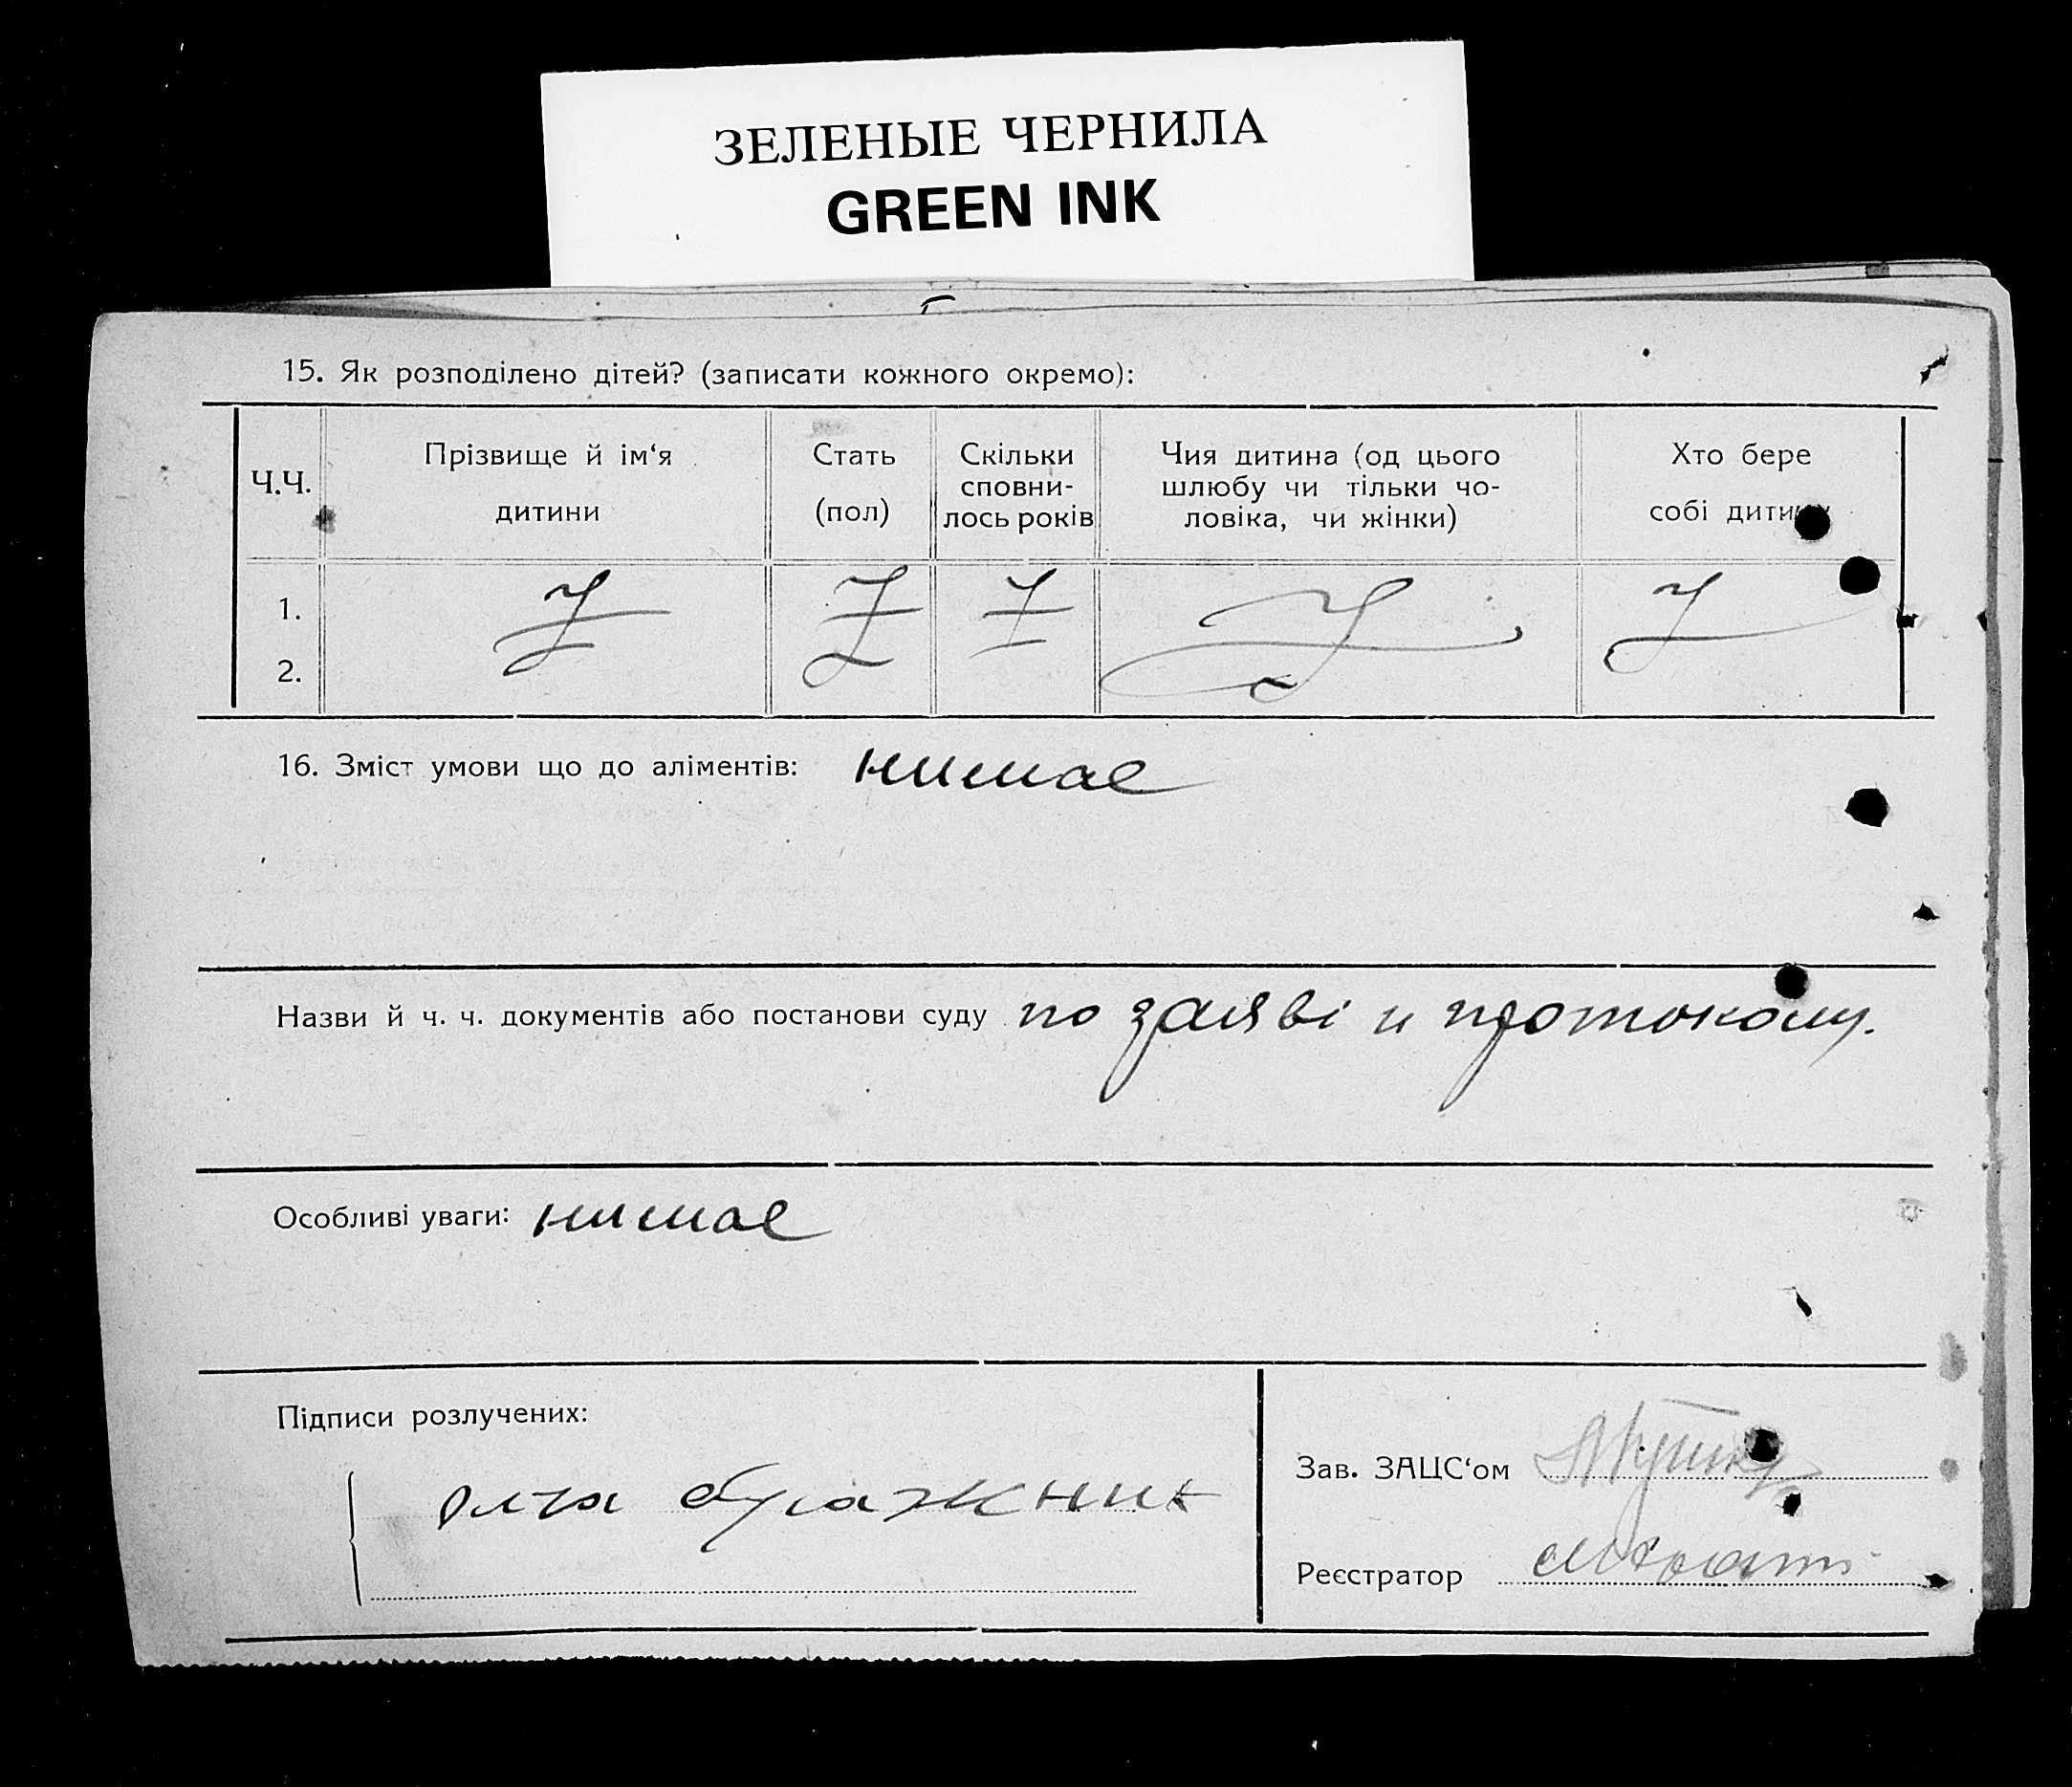 ЗЕЛЕНЫЕ ЧЕРНИЛА
GREEN INK
15. Як розподілено дітей? (записати кожного окремо):
Ч.Ч.
Прізвище й ім‘я
дитини
Стать
(пол)
Скільки
сповни-
лось років
Чия дитина (од цього
шлюбу чи тільки чо-
ловіка, чи жінки)
Хто бере
собі дитину
1.
2.
16. Зміст умови що до аліментів: нимае
Назви й ч. ч. документів або постанови суду по заяві и протоколу.
Особливі уваги: нимае
Підписи розлучених:
Олга Бражник
Зав. ЗАЦС‘ом
Реєстратор